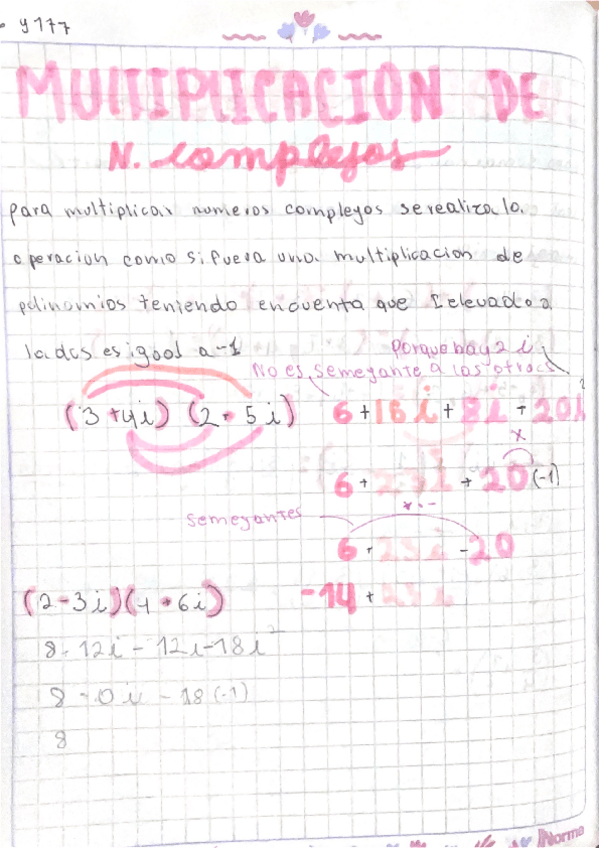 y 177
MULTIPLICACION DE
N. complejos
para multiplicar numeros compleyos se realiza la
operacion como si fuera una multiplicacion de
polinomios teniendo encuenta que I elevado a
la dos es igual a -1
Porque hay 2 i
No es semeyante a las otras
(3 + 4i) (2 + 5i) 6 + 15i + 8i + 20i²
6 + 23i + 20 (-1)
semeyantes
6 + 23i - 20
-14 + 23i
(2-3i)(4+6i)
8 + 12i - 12i - 18i²
8 - 0i - 18 (-1)
8
Norma